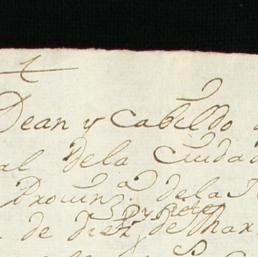 Dean y Cabildo
al de la Ciudad
Provin.ª de la
de diez de